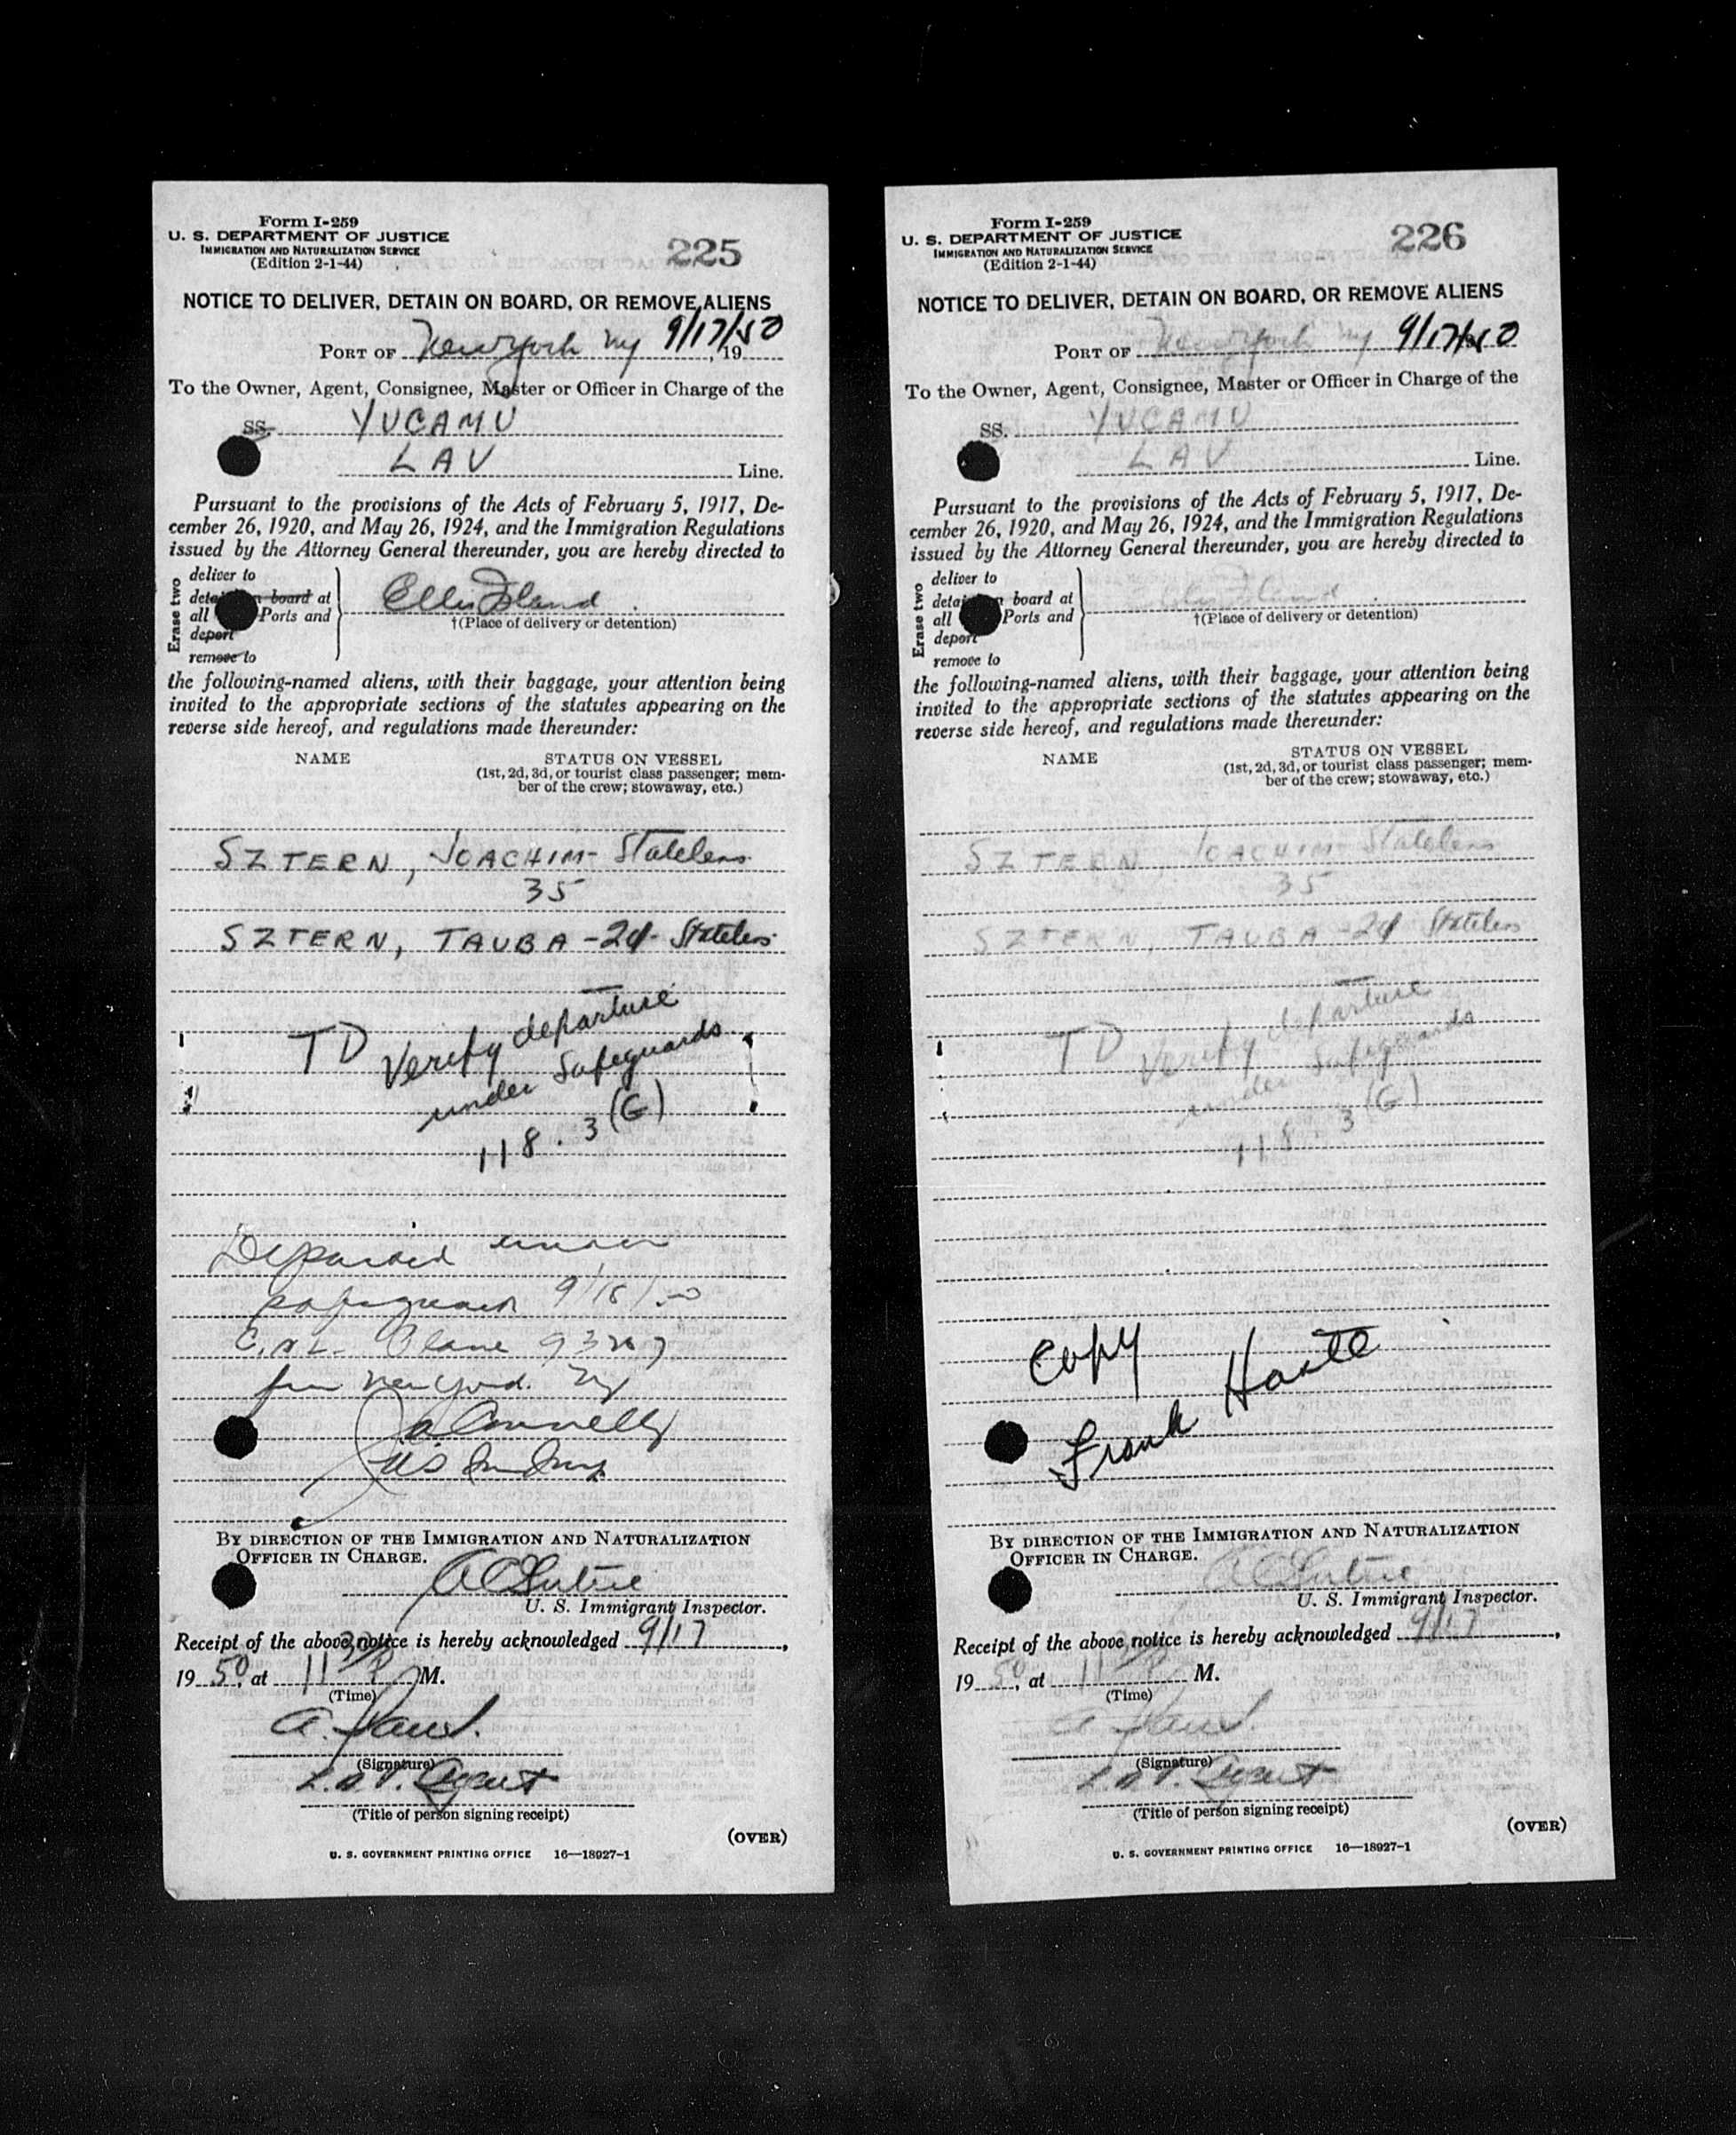 Form I-259
U. S. DEPARTMENT OF JUSTICE
IMMIGRATION AND NATURALIZATION SERVICE
(Edition 2-1-44)
225
NOTICE TO DELIVER, DETAIN ON BOARD, OR REMOVE ALIENS
PORT OF New York NY 9/17/50, 19
To the Owner, Agent, Consignee, Master or Officer in Charge of the
SS. YVCAMU
LAV Line.
Pursuant to the provisions of the Acts of February 5, 1917, De-
cember 26, 1920, and May 26, 1924, and the Immigration Regulations
issued by the Attorney General thereunder, you are hereby directed to
Erase two
deliver to
board at
all Ports and
deport
remove to
Ellis Island
†(Place of delivery or detention)
the following-named aliens, with their baggage, your attention being
invited to the appropriate sections of the statutes appearing on the
reverse side hereof, and regulations made thereunder:
NAME STATUS ON VESSEL
(1st, 2d, 3d, or tourist class passenger; mem-
ber of the crew; stowaway, etc.)
SZTERN, JOACHIM - Stateless
35
SZTERN, TAUBA - 24 - Stateless
TD Verify departure
under Safeguards
118.3 (G)
Departed under
safeguard 9/18/50
Plane
New York. NY
Connelly
US
BY DIRECTION OF THE IMMIGRATION AND NATURALIZATION
OFFICER IN CHARGE.
U. S. Immigrant Inspector.
Receipt of the above notice is hereby acknowledged 9/17,
1950, at 11 30 P M.
(Time)
A.
(Signature)
L.A.V. Agent
(Title of person signing receipt)
(OVER)
U. S. GOVERNMENT PRINTING OFFICE 16—18927-1
Form I-259
U. S. DEPARTMENT OF JUSTICE
IMMIGRATION AND NATURALIZATION SERVICE
(Edition 2-1-44)
226
NOTICE TO DELIVER, DETAIN ON BOARD, OR REMOVE ALIENS
PORT OF New York NY 9/17/50
To the Owner, Agent, Consignee, Master or Officer in Charge of the
SS. YVCAMU
LAV Line.
Pursuant to the provisions of the Acts of February 5, 1917, De-
cember 26, 1920, and May 26, 1924, and the Immigration Regulations
issued by the Attorney General thereunder, you are hereby directed to
Erase two
deliver to
board at
all Ports and
deport
remove to
Ellis Island
†(Place of delivery or detention)
the following-named aliens, with their baggage, your attention being
invited to the appropriate sections of the statutes appearing on the
reverse side hereof, and regulations made thereunder:
NAME STATUS ON VESSEL
(1st, 2d, 3d, or tourist class passenger; mem-
ber of the crew; stowaway, etc.)
SZTERN, JOACHIM - Stateless
35
SZTERN, TAUBA - 24 Stateless
TD Verify departure
under Safeguards
118.3 (G)
Copy
Frank Haite
BY DIRECTION OF THE IMMIGRATION AND NATURALIZATION
OFFICER IN CHARGE.
U. S. Immigrant Inspector.
Receipt of the above notice is hereby acknowledged 9/17,
1950, at 11 30 P M.
(Time)
A.
(Signature)
L.A.V. Agent
(Title of person signing receipt)
(OVER)
U. S. GOVERNMENT PRINTING OFFICE 16—18927-1